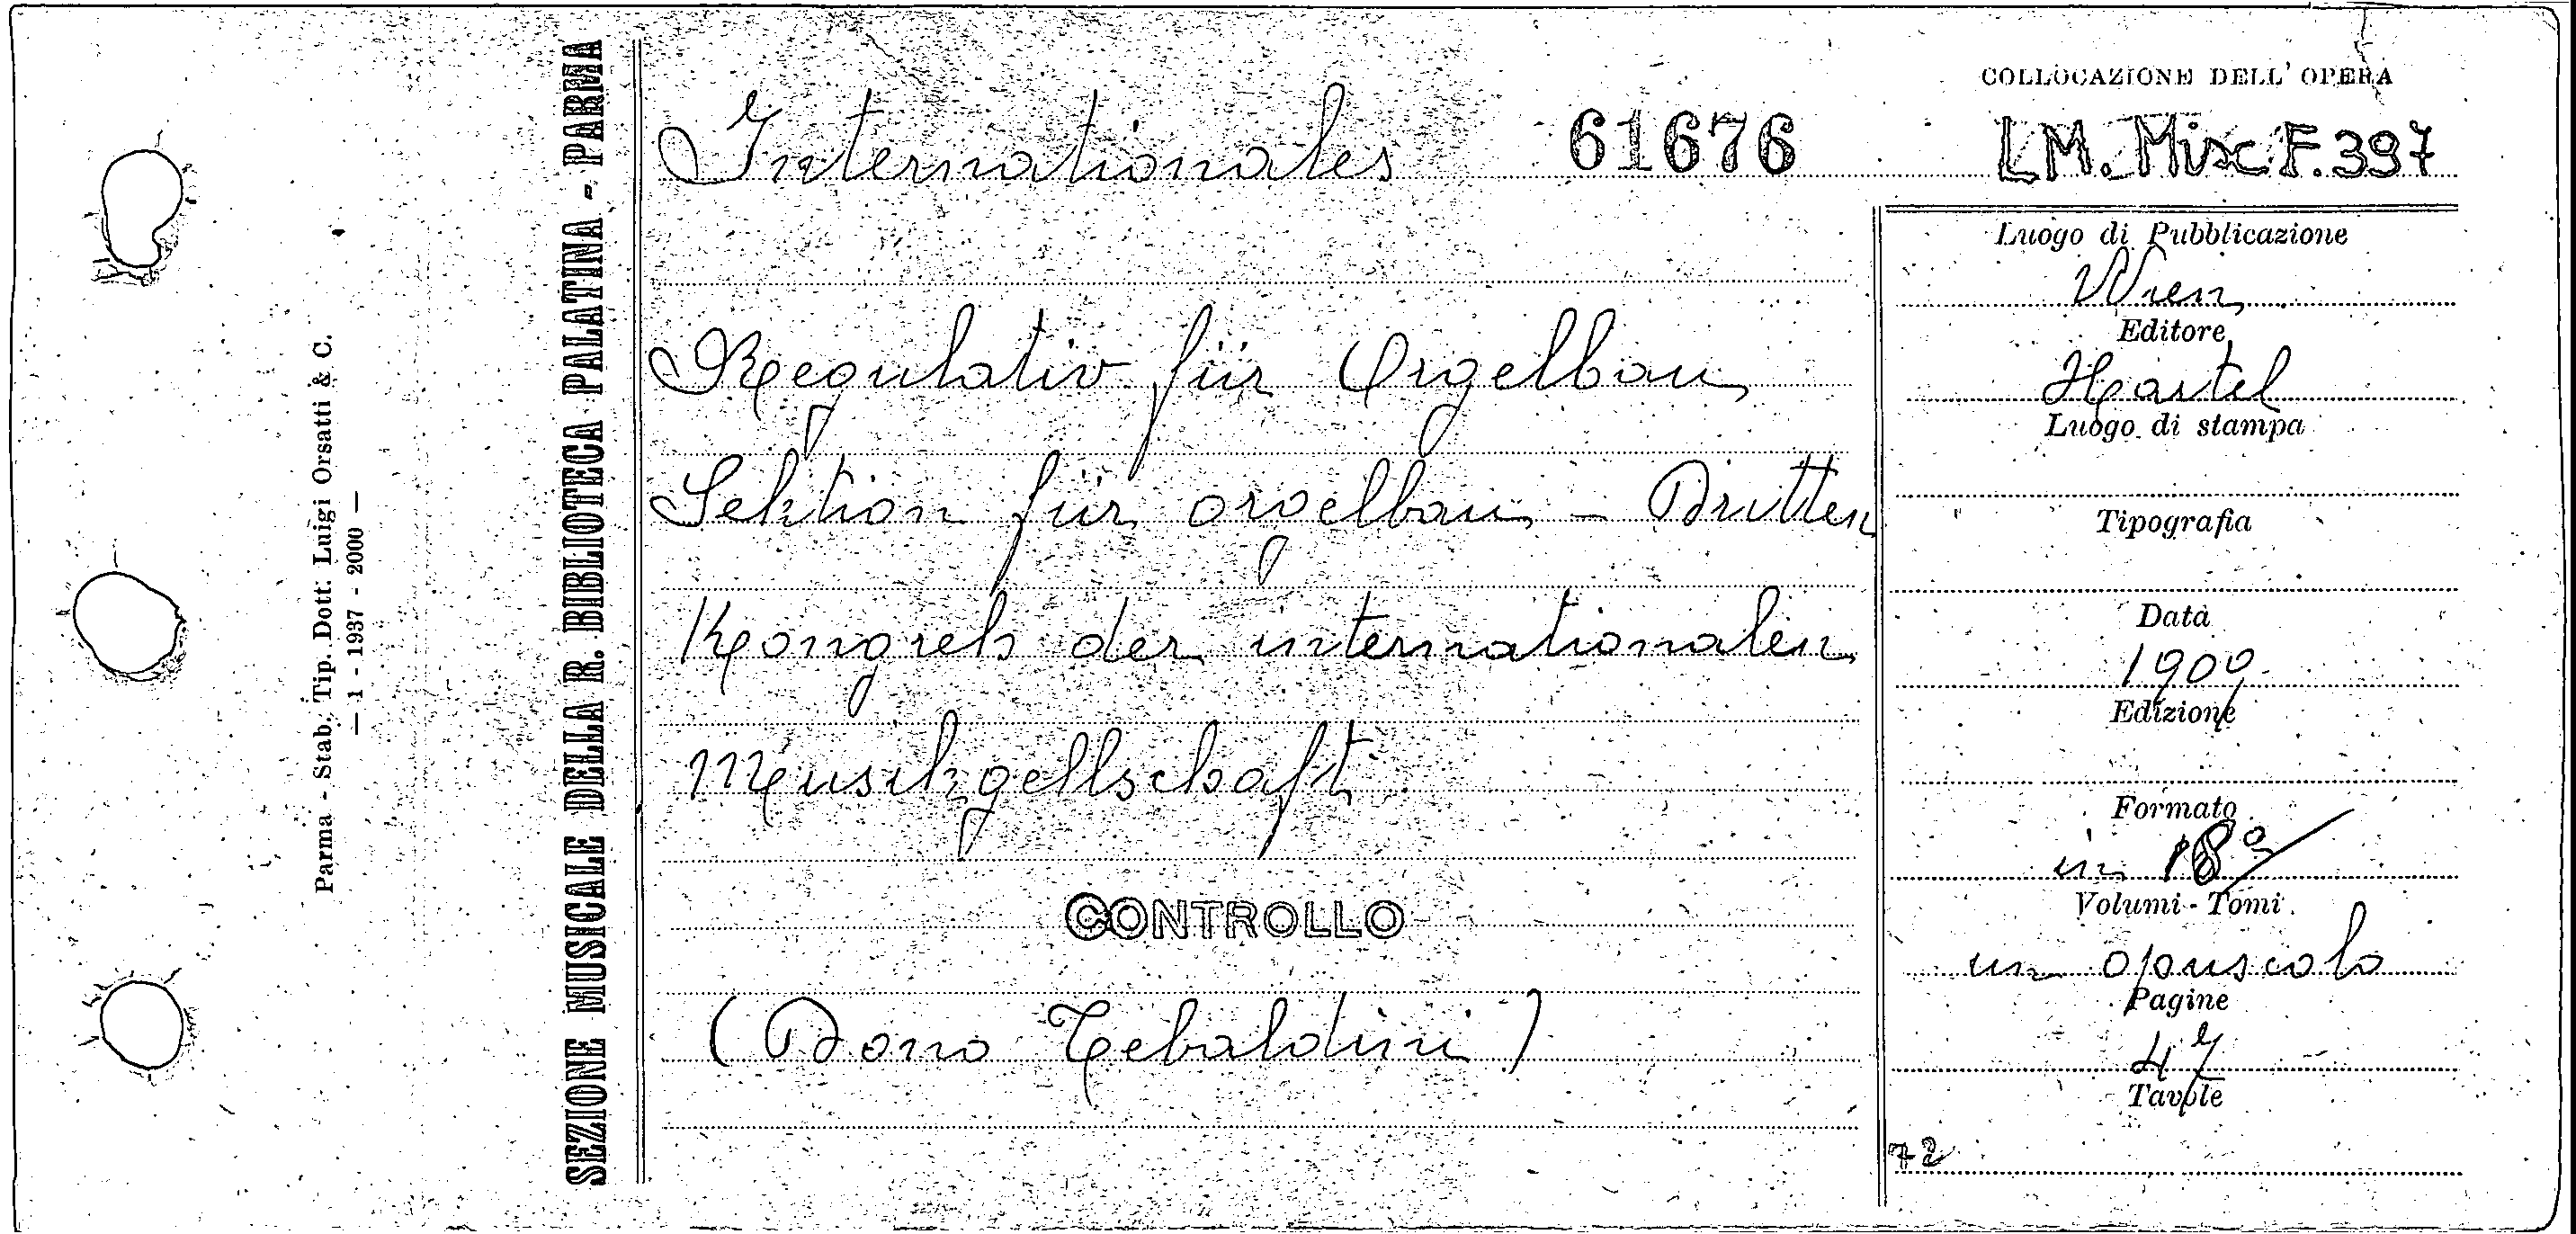 Parma - Stab. Tip. Dott. Luigi Orsatti & C.
— 1 - 1937 - 2000 —
SEZIONE MUSICALE DELLA R. BIBLIOTECA PALATINA - PARMA
Internationales 61676
Regulativ für Orgelbau
Sektion für orgelbau - Dritten
Kongreß der internationalen
Musikgellschaft
CONTROLLO
(Dono Tebaldini)
COLLOCAZIONE DELL' OPERA
LM. Misc F. 397
Luogo di Pubblicazione
Wien
Editore
Hartel
Luogo di stampa
Tipografia
Data
1909
Edizione
Formato
in 18º
Volumi - Tomi
un opuscolo
Pagine
47
Tavole
72